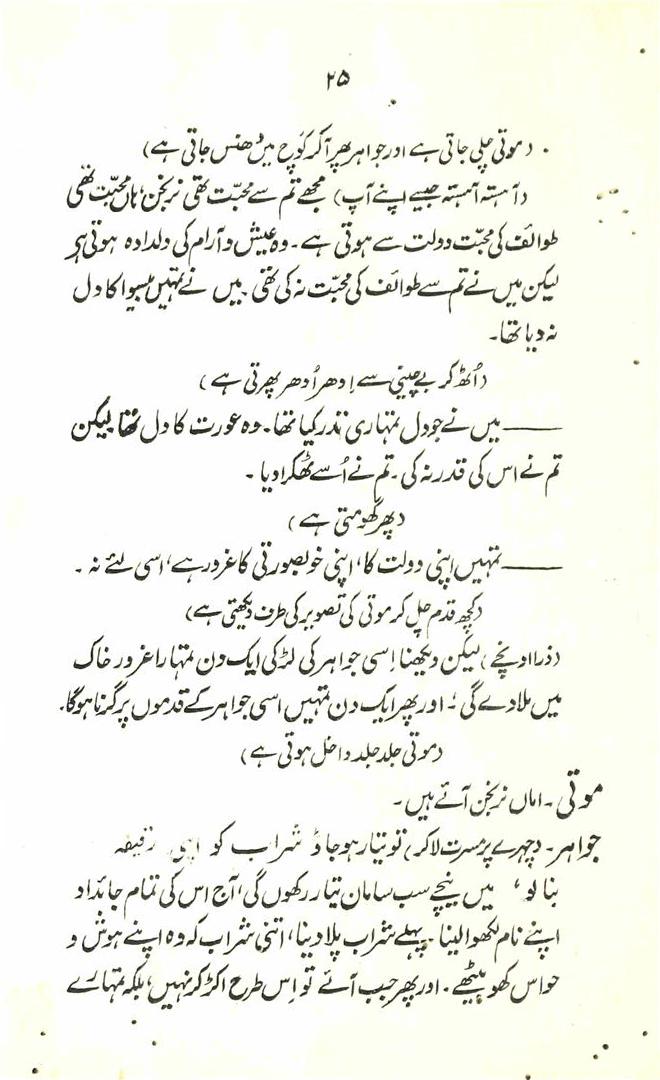 ۲۵
(موتی چلی جاتی ہے اور جواہر پھر آ کر کوچ میں دھنس جاتی ہے)
(آہستہ آہستہ جیسے اپنے آپ) مجھے تم سے محبّت تھی نرنجن، ہاں محبّت تھی
طوائف کی محبّت دولت سے ہوتی ہے۔ وہ عیش و آرام کی دلدادہ ہوتی ہی
لیکن میں نے تم سے طوائف کی محبّت نہ کی تھی۔ میں نے تمہیں بیسوا کا دل
نہ دیا تھا۔
(اُٹھ کر بے چینی سے اِدھر اُدھر پھرتی ہے)
—— میں نے جو دل تمہاری نذر کیا تھا۔ وہ عورت کا دل تھا لیکن
تم نے اس کی قدر نہ کی۔ تم نے اُسے ٹھکرا دیا ۔
(پھر گھومتی ہے)
—— تمہیں اپنی دولت کا، اپنی خوبصورتی کا غرور ہے، اسی لئے نہ ۔
(کچھ قدم چل کر موتی کی تصویر کی طرف دیکھتی ہے)
(ذرا اونچے) لیکن دیکھنا اِسی جواہر کی لڑکی ایک دن تمہارا غرور خاک
میں ملا دے گی ؛ اور پھر ایک دن تمہیں اسی جواہر کے قدموں پر گرنا ہوگا۔
(موتی جلد جلد داخل ہوتی ہے)
موتی ۔ اماں نرنجن آئے ہیں۔
جواہر۔ (چہرے پر مسرت لا کر) تو تیار ہو جاؤ شراب کو اپنی رفیقہ
بنا لو، میں نیچے سب سامان تیار رکھوں گی، آج اس کی تمام جائداد
اپنے نام لکھوا لینا۔ پہلے شراب پلا دینا، اتنی شراب کہ وہ اپنے ہوش و
حواس کھو بیٹھے۔ اور پھر جب آئے تو اِس طرح اکڑ کر نہیں، بلکہ تمہارے